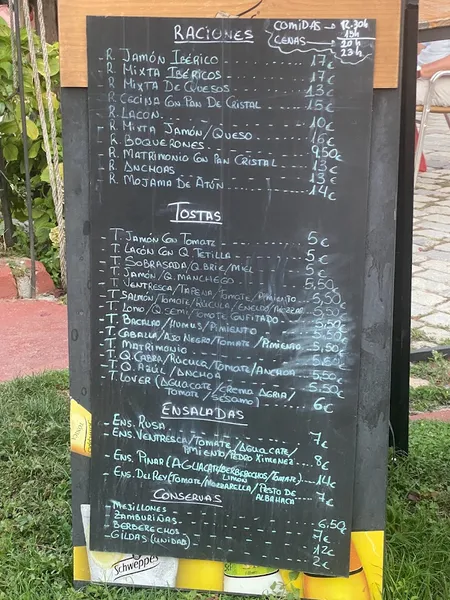 RACIONES
COMIDAS → 12.30h
15h
CENAS → 20h
23h
R. JAMÓN IBÉRICO 17€
R. MIXTA IBÉRICOS 17€
R. MIXTA DE QUESOS 13€
R. CECINA CON PAN DE CRISTAL 15€
R. LACÓN 10€
R. MIXTA JAMÓN/QUESO 16€
R. BOQUERONES 9,50€
R. MATRIMONIO CON PAN CRISTAL 13€
R. ANCHOAS 13€
R. MOJAMA DE ATÚN 14€
TOSTAS
T. JAMÓN CON TOMATE 5€
T. LACÓN CON Q. TETILLA 5€
T. SOBRASADA/Q. BRIE/MIEL 5€
T. JAMÓN/Q. MANCHEGO 5,50€
T. VENTRESCA/TAPENA/TOMATE/PIMIENTO 5,50€
T. SALMÓN/TOMATE/RÚCULA/ENELDO/MOZZAR. 5,50€
T. LOMO/Q. SEMI/TOMATE CONFITADO 5,50€
T. BACALAO/HUMUS/PIMIENTO 5,50€
T. CABALLA/AJO NEGRO/TOMATE/PIMIENTO 5,50€
T. MATRIMONIO 5,50€
T. Q. CABRA/RÚCULA/TOMATE/ANCHOA 5,50€
T. Q. AZUL/ANCHOA 5,50€
T. LOVER (AGUACATE/CREMA AGRIA/
TOMATE/SÉSAMO) 6€
ENSALADAS
ENS. RUSA 7€
ENS. VENTRESCA/TOMATE/AGUACATE/
PIMIENTO/PEDRO XIMENEZ 8€
ENS. PINAR (AGUACATE/BERBERECHOS/TOMATE) 14€
LIMÓN
ENS. DEL REY (TOMATE/MOZZARELLA/PESTO DE 7€
ALBAHACA
CONSERVAS
MEJILLONES 6,50€
ZAMBURIÑAS 7€
BERBERECHOS 12€
GILDAS (UNIDAD) 2€
Schweppes